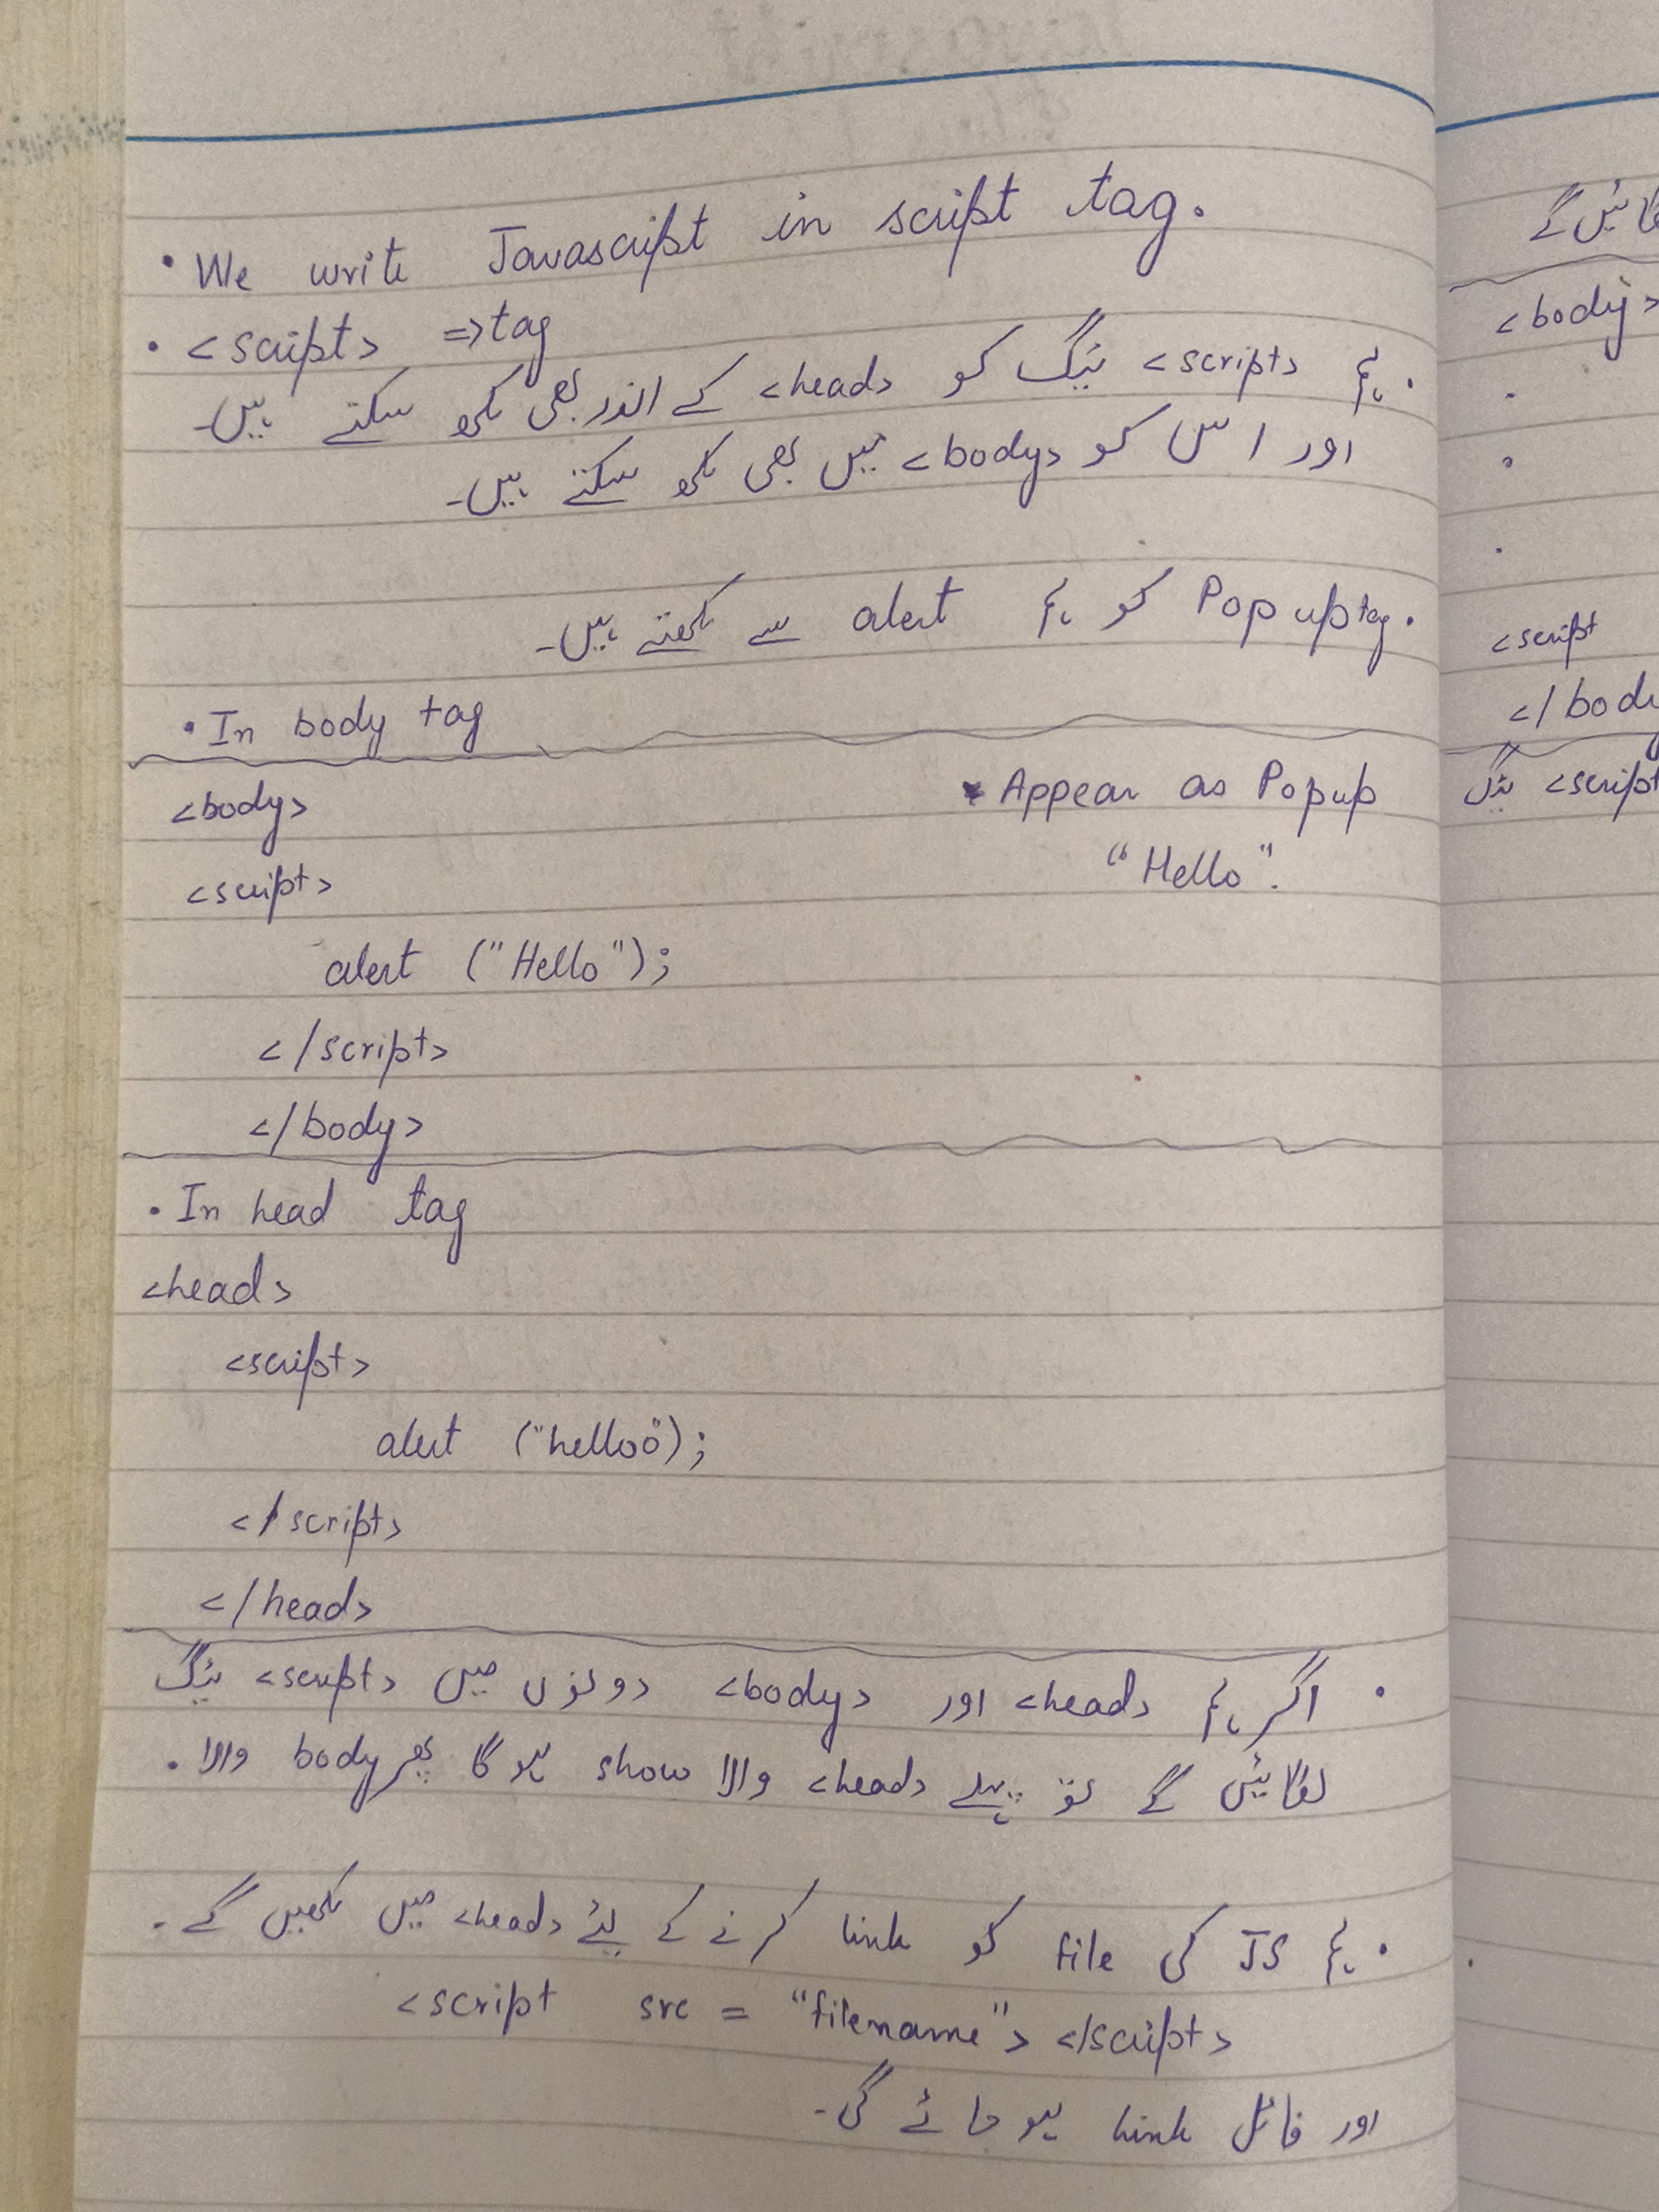 • We write Javascript in script tag.
• <script> => tag
• ہم <script> ٹیگ کو <head> کے اندر بھی لکھ سکتے ہیں۔
اور اس کو <body> میں بھی لکھ سکتے ہیں۔
• Pop up tag کو ہم alert سے لکھتے ہیں۔
• In body tag
<body>
• Appear as Popup
<script>
"Hello".
alert ("Hello");
</script>
</body>
• In head tag
<head>
<script>
alert ("helloo");
</script>
</head>
• اگر ہم <head> اور <body> دونوں میں <script> ٹیگ
لگائیں گے تو پہلے <head> والا show ہو گا پھر body والا .
• ہم JS کی file کو link کرنے کے لئے <head> میں لکھیں گے۔
<script src = "filename"> </script>
اور فائل link ہو جائے گی۔
ئیں گے
<body>
<script
</body
<script ٹیگ